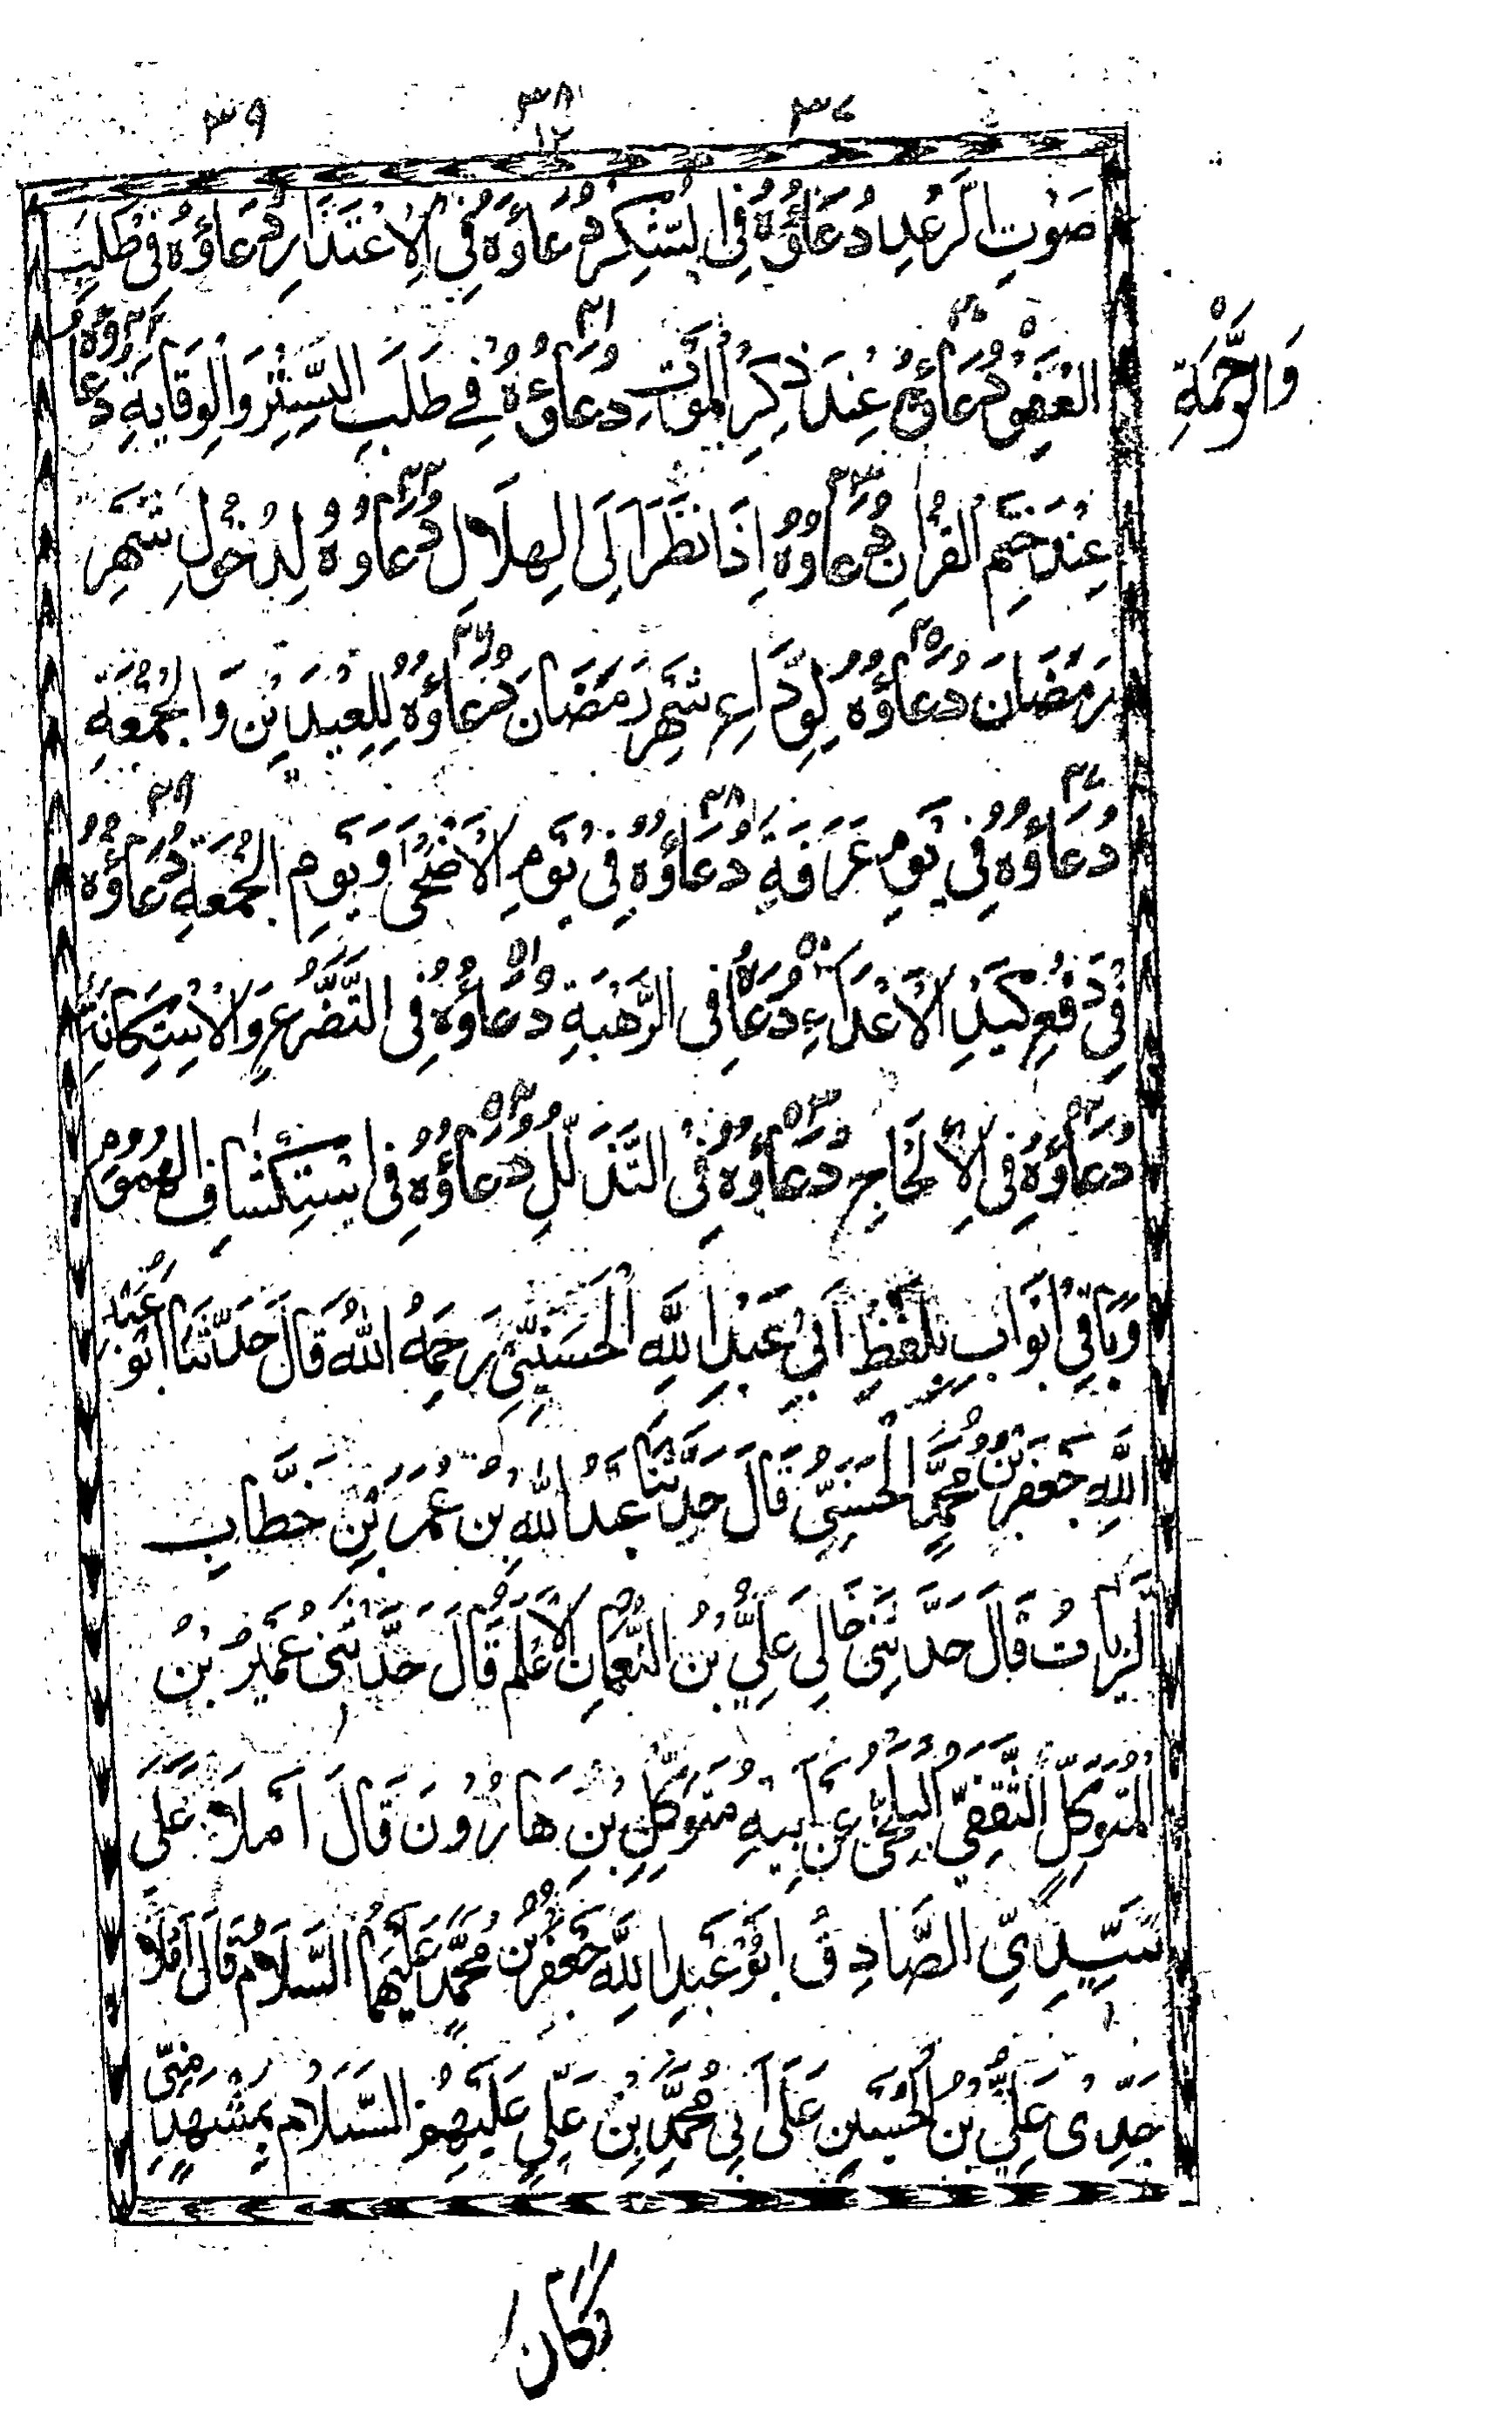 ٣٧ ٣٨ ٣٩
١٢
صَوْتِ الرَّعْدِ دُعَاؤُهُ فِي الشُّكْرِ دُعَاؤُهُ فِي الْاِعْتِذَارِ دُعَاؤُهُ فِي طَلَبِ
الْعَفْوِ دُعَاؤُهُ عِنْدَ ذِكْرِ الْمَوْتِ دُعَاؤُهُ فِي طَلَبِ السِّتْرِ وَالْوِقَايَةِ دُعَاؤُهُ
وَالرَّحْمَةِ
عِنْدَ خَتْمِ الْقُرْاٰنِ دُعَاؤُهُ اِذَا نَظَرَ اِلَى الْهِلَالِ دُعَاؤُهُ لِدُخُوْلِ شَهْرِ
رَمَضَانَ دُعَاؤُهُ لِوَدَاعِ شَهْرِ رَمَضَانَ دُعَاؤُهُ لِلْعِيْدَيْنِ وَالْجُمُعَةِ
دُعَاؤُهُ فِي يَوْمِ عَرَفَةَ دُعَاؤُهُ فِي يَوْمِ الْاَضْحٰى وَيَوْمِ الْجُمُعَةِ دُعَاؤُهُ
فِي دَفْعِ كَيْدِ الْاَعْدَاءِ دُعَاؤُهُ فِي الرَّهْبَةِ دُعَاؤُهُ فِي التَّضَرُّعِ وَالْاِسْتِكَانَةِ
دُعَاؤُهُ فِي الْاِلْحَاحِ دُعَاؤُهُ فِي التَّذَلُّلِ دُعَاؤُهُ فِي اسْتِكْشَافِ الْهُمُوْمِ
وَبَاقِي اَبْوَابِ بِلَفْظِ اَبِيْ عَبْدِ اللّٰهِ الْحَسَنِيِّ رَحِمَهُ اللّٰهُ قَالَ حَدَّثَنَا اَبُوْ عَبْدِ
اللّٰهِ جَعْفَرُ بْنُ مُحَمَّدٍ الْحَسَنِيُّ قَالَ حَدَّثَنَا عَبْدُ اللّٰهِ بْنُ عُمَرَ بْنِ خَطَّابِ
الزَّيَّاتُ قَالَ حَدَّثَنِيْ خَالِيْ عَلِيُّ بْنُ النُّعْمَانِ الْاَعْلَمُ قَالَ حَدَّثَنِيْ عُمَيْرُ بْنُ
الْمُتَوَكِّلِ الثَّقَفِيُّ الْبَلْخِيُّ عَنْ اَبِيْهِ مُتَوَكِّلِ بْنِ هَارُوْنَ قَالَ اَمْلَا عَلَيَّ
سَيِّدِيَ الصَّادِقُ اَبُوْ عَبْدِ اللّٰهِ جَعْفَرُ بْنُ مُحَمَّدٍ عَلَيْهِمَا السَّلَامُ قَالَ اَمْلَا
جَدِّيْ عَلِيُّ بْنُ الْحُسَيْنِ عَلٰى اَبِيْ مُحَمَّدِ بْنِ عَلِيٍّ عَلَيْهِمُ السَّلَامُ بِمَشْهَدٍ مِنِّيْ